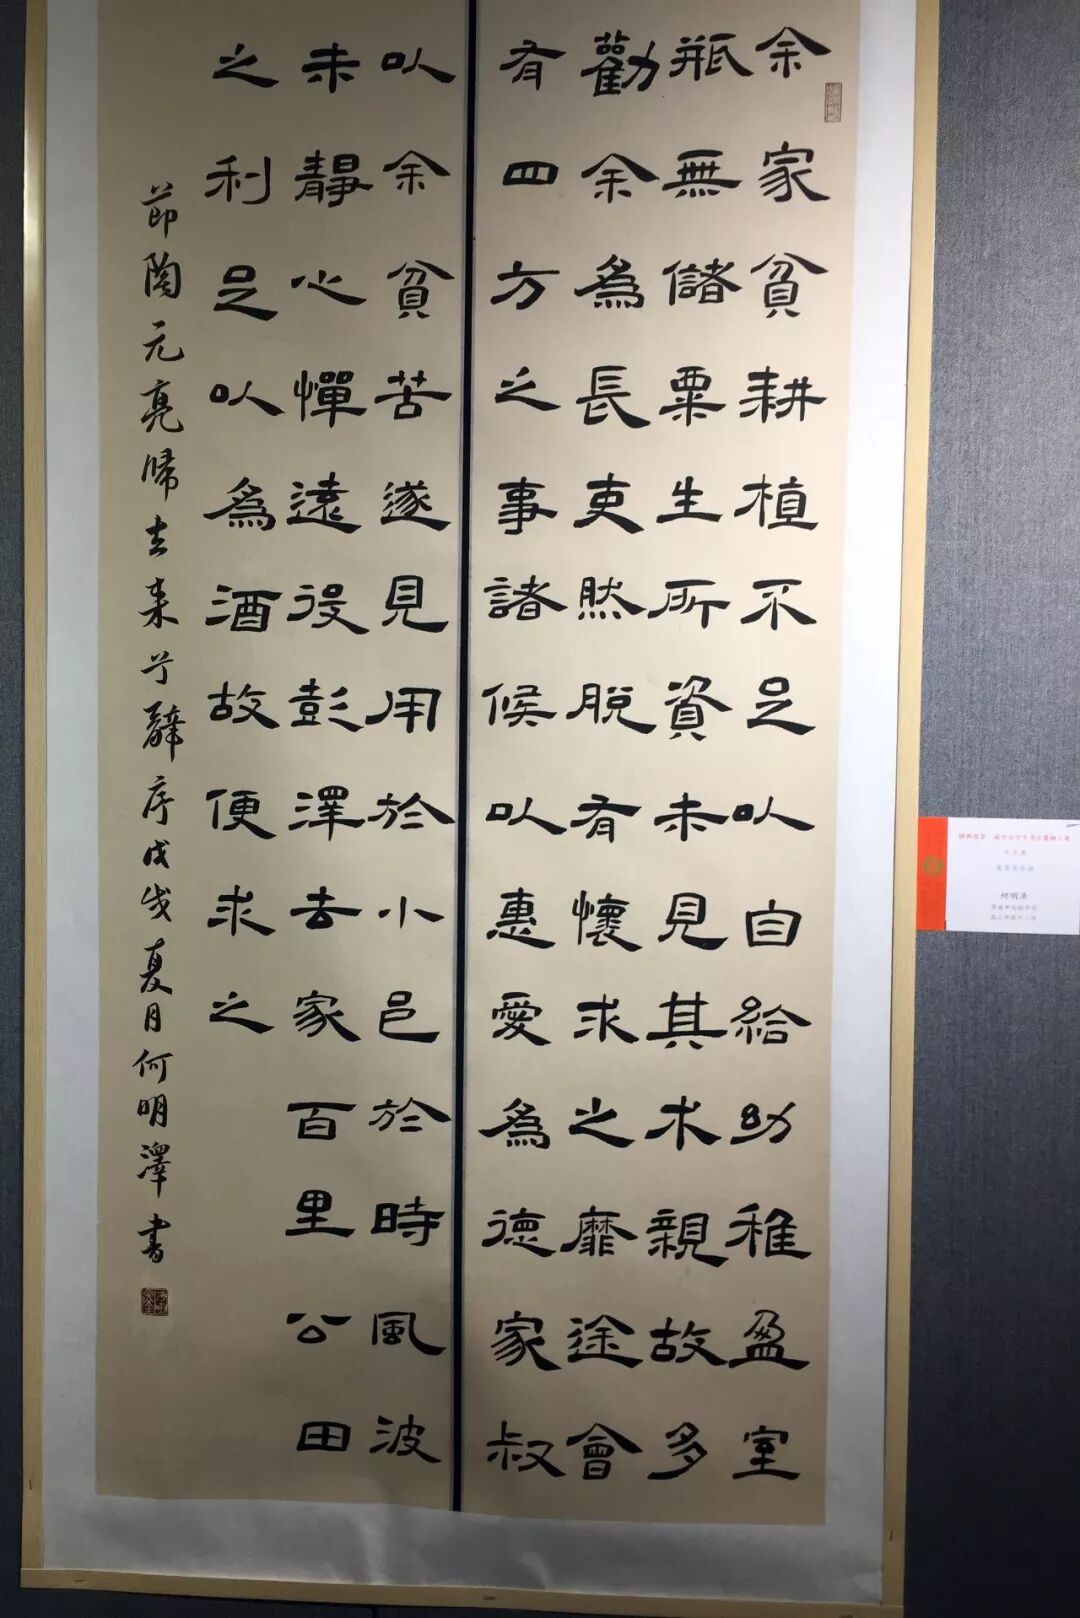 余家貧耕植不足以自給幼稚盈室
瓶無儲粟生所資未見其术親故多
勸余為長吏然脫有懷求之靡途會
有四方之事諸候以惠愛為德家叔
以余貧苦遂見用於小邑於時風波
未靜心憚遠役彭澤去家百里公田
之利足以為酒故便求之
節陶元亮歸去来兮辭序戊戌夏月何明澤書
何明泽